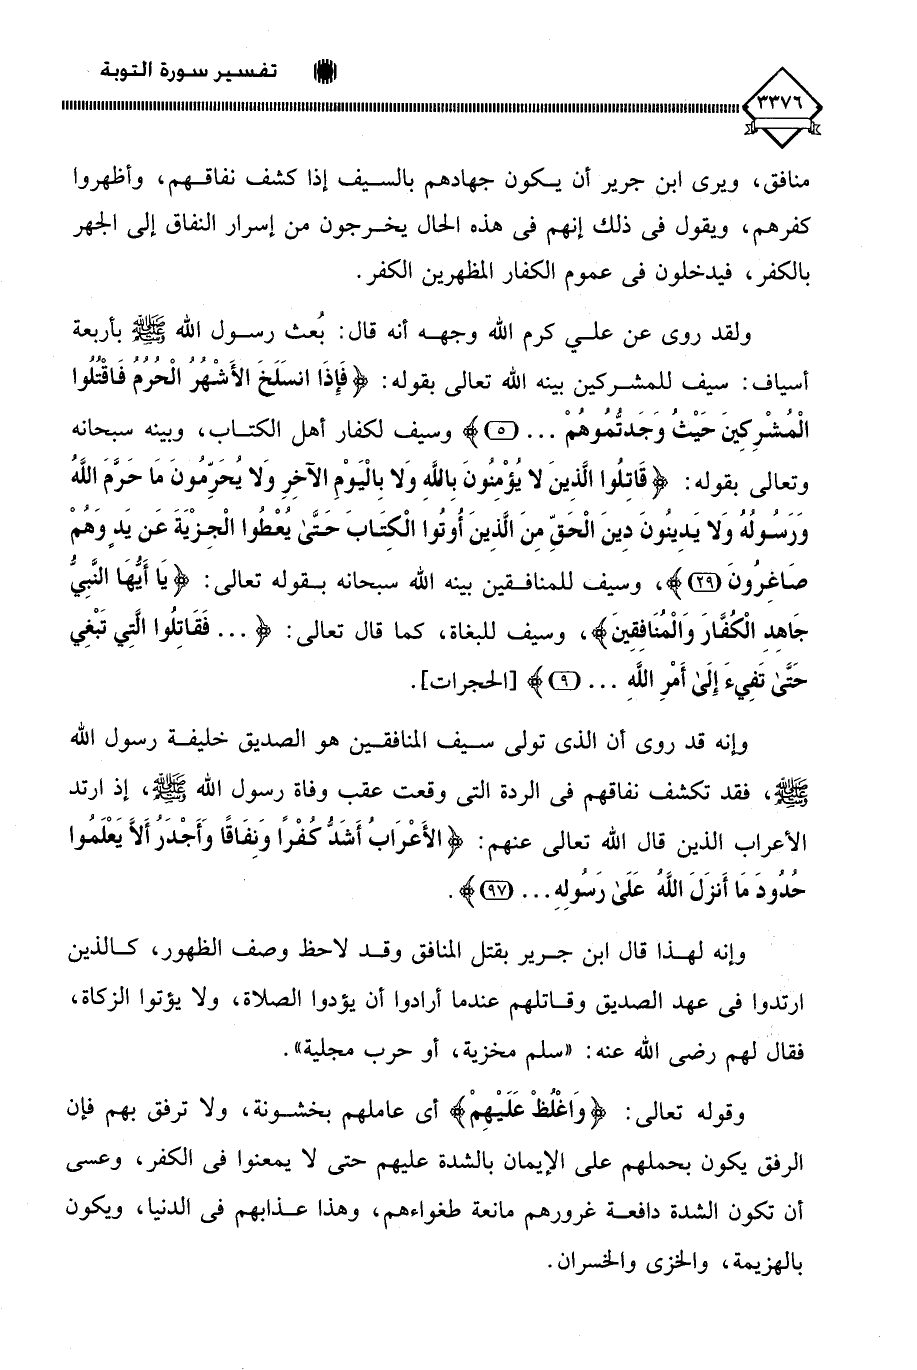 تفسير سورة التوبة
٣٣٧٦
منافق، ويرى ابن جرير أن يكون جهادهم بالسيف إذا كشف نفاقهم، وأظهروا
كفرهم، ويقول فى ذلك إنهم فى هذه الحال يخرجون من إسرار النفاق إلى الجهر
بالكفر، فيدخلون فى عموم الكفار المظهرين الكفر.
ولقد روى عن علي كرم الله وجهه أنه قال: بُعث رسول الله ﷺ بأربعة
أسياف: سيف للمشركين بينه الله تعالى بقوله: ﴿فَإِذَا انسَلَخَ الأَشْهُرُ الْحُرُمُ فَاقْتُلُوا
الْمُشْرِكِينَ حَيْثُ وَجَدتُّمُوهُمْ ... (٥)﴾ وسيف لكفار أهل الكتاب، وبينه سبحانه
وتعالى بقوله: ﴿قَاتِلُوا الَّذِينَ لا يُؤْمِنُونَ بِاللَّهِ وَلا بِالْيَوْمِ الآخِرِ وَلا يُحَرِّمُونَ مَا حَرَّمَ اللَّهُ
وَرَسُولُهُ وَلا يَدِينُونَ دِينَ الْحَقِّ مِنَ الَّذِينَ أُوتُوا الْكِتَابَ حَتَّىٰ يُعْطُوا الْجِزْيَةَ عَن يَدٍ وَهُمْ
صَاغِرُونَ (٢٩)﴾، وسيف للمنافقين بينه الله سبحانه بقوله تعالى: ﴿يَا أَيُّهَا النَّبِيُّ
جَاهِدِ الْكُفَّارَ وَالْمُنَافِقِينَ﴾، وسيف للبغاة، كما قال تعالى: ﴿... فَقَاتِلُوا الَّتِي تَبْغِي
حَتَّىٰ تَفِيءَ إِلَىٰ أَمْرِ اللَّهِ ... (٩)﴾ [الحجرات].
وإنه قد روى أن الذى تولى سيف المنافقين هو الصديق خليفة رسول الله
ﷺ، فقد تكشف نفاقهم فى الردة التى وقعت عقب وفاة رسول الله ﷺ، إذ ارتد
الأعراب الذين قال الله تعالى عنهم: ﴿الأَعْرَابُ أَشَدُّ كُفْرًا وَنِفَاقًا وَأَجْدَرُ أَلاَّ يَعْلَمُوا
حُدُودَ مَا أَنزَلَ اللَّهُ عَلَىٰ رَسُولِهِ ... (٩٧)﴾.
وإنه لهذا قال ابن جرير بقتل المنافق وقد لاحظ وصف الظهور، كالذين
ارتدوا فى عهد الصديق وقاتلهم عندما أرادوا أن يؤدوا الصلاة، ولا يؤتوا الزكاة،
فقال لهم رضى الله عنه: «سلم مخزية، أو حرب مجلية».
وقوله تعالى: ﴿وَاغْلُظْ عَلَيْهِمْ﴾ أى عاملهم بخشونة، ولا ترفق بهم فإن
الرفق يكون بحملهم على الإيمان بالشدة عليهم حتى لا يمعنوا فى الكفر، وعسى
أن تكون الشدة دافعة غرورهم مانعة طغواءهم، وهذا عذابهم فى الدنيا، ويكون
بالهزيمة، والخزى والخسران.